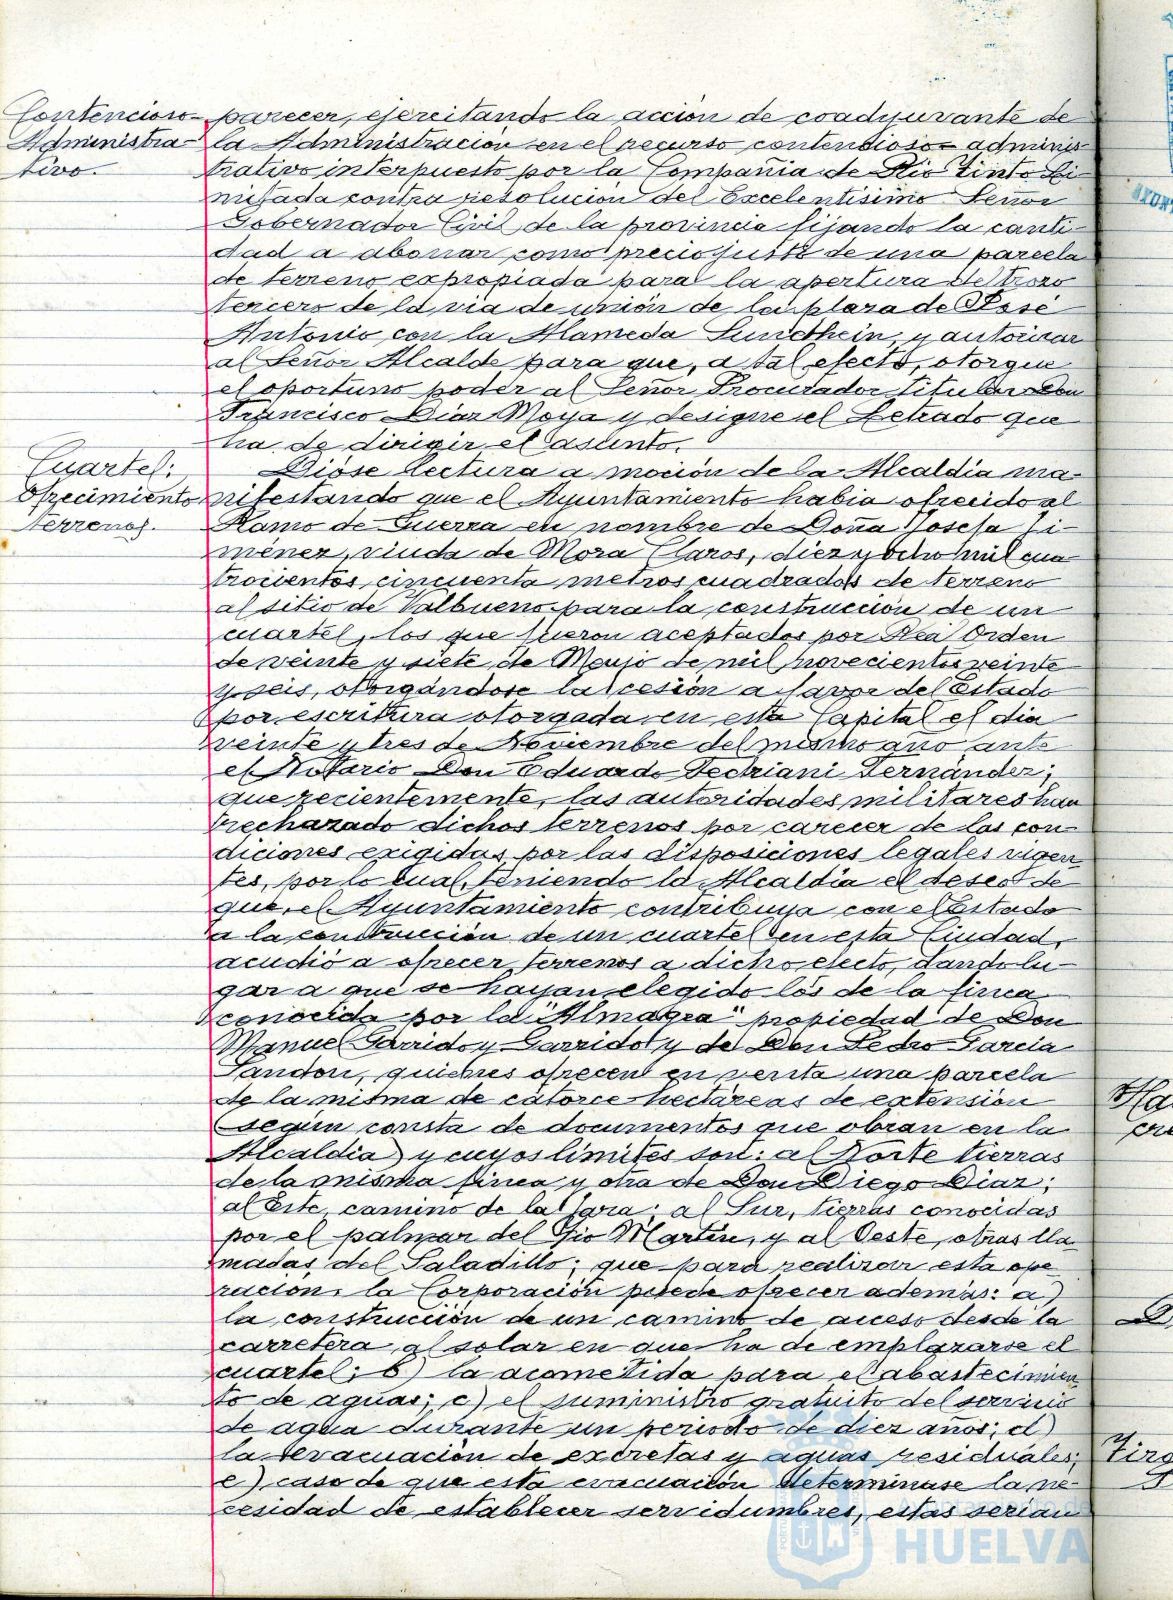 Contencioso-
Administra-
tivo.
parecer, ejercitando la acción de coadyuvante de
la Administración en el recurso contencioso-adminis-
trativo interpuesto por la Compañia de Rio Tinto Li-
mitada contra resolución del Excelentísimo Señor
Gobernador Civil de la provincia fijando la canti-
dad a abonar como precio justo de una parcela
de terreno expropiada para la apertura del trozo
tercero de la via de unión de la plaza de José
Antonio con la Alameda Sundhein, y autorizar
al Señor Alcalde para que, a tal efecto, otorgue
el oportuno poder al Señor Procurador titular Don
Francisco Diaz Moya y designe el Letrado que
ha de dirigir el asunto.
Cuartel:
Ofrecimiento
terrenos.
Dióse lectura a moción de la Alcaldía ma-
nifestando que el Ayuntamiento habia ofrecido al
Ramo de Guerra en nombre de Doña Josefa Ji-
ménez, viuda de Mora Claros, diez y ocho mil cua
trocientos cincuenta metros cuadrados de terreno
al sitio de Valbueno para la construcción de un
cuartel, los que fueron aceptados por Real Orden
de veinte y siete de Mayo de mil novecientos veinte
y seis, otorgándose la cesión a favor del Estado
por escritura otorgada en esta Capital el dia
veinte y tres de Noviembre del mismo año ante
el Notario Don Eduardo Fedriani Fernández;
que recientemente, las autoridades militares han
rechazado dichos terrenos por carecer de las con-
diciones exigidas por las disposiciones legales vigen-
tes, por lo cual, teniendo la Alcaldía el deseo de
que el Ayuntamiento contribuya con el Estado
a la construcción de un cuartel en esta Ciudad,
acudió a ofrecer terrenos a dicho efecto, dando lu-
gar a que se hayan elegido los de la finca
conocida por la "Almagra" propiedad de Don
Manuel Garrido y Garrido y de Don Pedro Garcia
quienes ofrecen en venta una parcela
de la misma de catorce hectáreas de extensión
(según consta de documentos que obran en la
Alcaldía) y cuyos límites son: al Norte tierras
de la misma finca y otra de Don Diego Diaz;
al Este, camino de la Jara; al Sur, tierras conocidas
por el palmar del Tio Martin, y al Oeste, otras lla-
madas del Saladillo; que para realizar esta ope
ración, la Corporación puede ofrecer además: a)
la construcción de un camino de acceso desde la
carretera al solar en que ha de emplazarse el
cuartel; b) la acometida para el abastecimien
to de aguas; c) el suministro gratuito del servicio
de agua durante un periodo de diez años; d)
la evacuación de excretas y aguas residuales;
e) caso de que esta evacuación determinase la ne-
cesidad de establecer servidumbres, estas serían
Ayuntamiento de
HUELVA